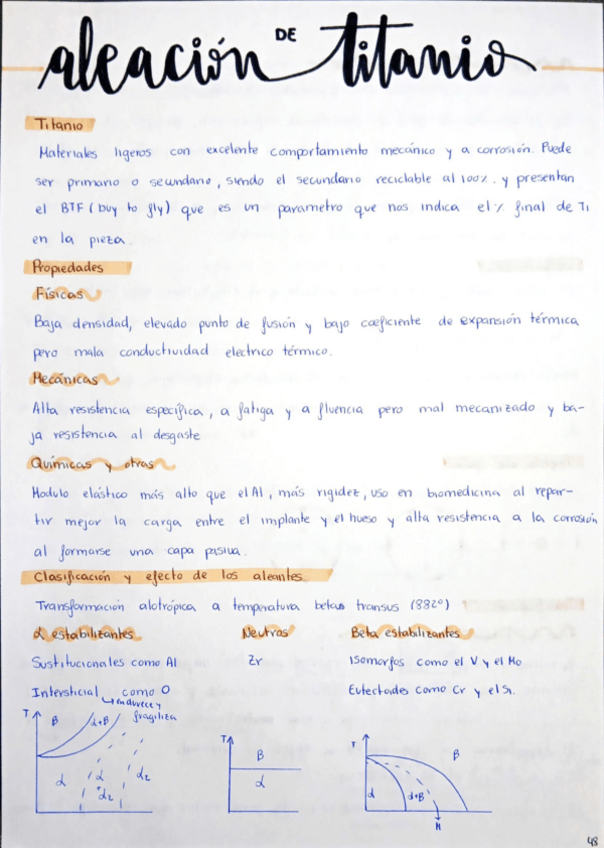 aleación DE titanio
Titanio
Materiales ligeros con excelente comportamiento mecánico y a corrosión. Puede
ser primario o secundario, siendo el secundario reciclable al 100%. y presentan
el BTF (buy to fly) que es un parametro que nos indica el % final de Ti
en la pieza.
Propiedades
Físicas
Baja densidad, elevado punto de fusión y bajo coeficiente de expansión térmica
pero mala conductividad electrico térmico.
Mecánicas
Alta resistencia especifica, a fatiga y a fluencia pero mal mecanizado y ba-
ja resistencia al desgaste
Químicas y otras
Modulo elástico más alto que el Al, más rigidez, uso en biomedicina al repar-
tir mejor la carga entre el implante y el hueso y alta resistencia a la corrosión
al formarse una capa pasiva.
Clasificación y efecto de los aleantes
Transformación alotrópica a temperatura betas transus (882°)
α estabilizantes Neutros Beta estabilizantes
Sustitucionales como Al Zr Isomorfos como el V y el Mo
Intersticial como O Eutectoides como Cr y el Si.
endurece y
fragiliza
T β α+β
α α α2
α2
T β
α
T β
α α+β
M
48